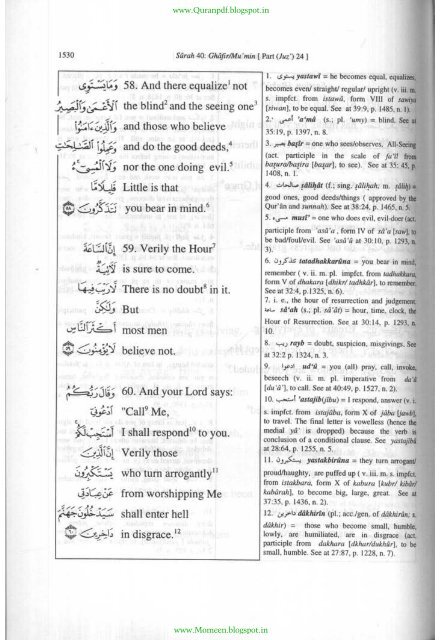 www.Quranpdf.blogspot.in
1530
Sūrah 40: Ghâfir/Mu'min [ Part (Juz') 24 ]
وَمَا يَسْتَوِي
58. And there equalize¹ not
الْأَعْمَىٰ وَالْبَصِيرُ
the blind² and the seeing one³
وَالَّذِينَ آمَنُوا
and those who believe
وَعَمِلُوا الصَّالِحَاتِ
and do the good deeds,⁴
وَلَا الْمُسِيءُ
nor the one doing evil.⁵
قَلِيلًا مَّا
Little is that
تَتَذَكَّرُونَ ٥٨
you bear in mind.⁶
إِنَّ السَّاعَةَ
59. Verily the Hour⁷
لَآتِيَةٌ
is sure to come.
لَّا رَيْبَ فِيهَا
There is no doubt⁸ in it.
وَلَٰكِنَّ
But
أَكْثَرَ النَّاسِ
most men
لَا يُؤْمِنُونَ ٥٩
believe not.
وَقَالَ رَبُّكُمُ
60. And your Lord says:
ادْعُونِي
"Call⁹ Me,
أَسْتَجِبْ لَكُمْ
I shall respond¹⁰ to you.
إِنَّ الَّذِينَ
Verily those
يَسْتَكْبِرُونَ
who turn arrogantly¹¹
عَنْ عِبَادَتِي
from worshipping Me
سَيَدْخُلُونَ جَهَنَّمَ
shall enter hell
دَاخِرِينَ ٦٠
in disgrace.¹²
1. يستوي yastawî = he becomes equal, equalizes,
becomes even/ straight/ regular/ upright (v. iii. m.
s. impfct. from istawâ, form VIII of sawiya
[siwan], to be equal. See at 39:9, p. 1485, n. 1).
2. أعمى 'a'mâ (s.; pl. 'umy) = blind. See at
35:19, p. 1397, n. 8.
3. بصير baṣîr = one who sees/observes, All-Seeing
(act. participle in the scale of fa'îl from
baṣura/baṣira [baṣar], to see). See at 35: 45, p.
1408, n. 1.
4. صالحات ṣâliḥât (f.; sing. ṣâliḥah; m. ṣâliḥ) =
good ones, good deeds/things ( approved by the
Qur'ân and sunnah). See at 38:24, p. 1465, n. 5.
5. مسيء musî' = one who does evil, evil-doer (act.
participle from 'asâ'a , form IV of sâ'a [saw'], to
be bad/foul/evil. See 'asâ'û at 30:10, p. 1293, n.
3).
6. تتذكرون tatadhakkarûna = you bear in mind,
remember ( v. ii. m. pl. impfct. from tadhakkara,
form V of dhakara [dhikr/ tadhkâr], to remember.
See at 32:4, p.1325, n. 6).
7. i. e., the hour of resurrection and judgement.
ساعة sâ'ah (s.; pl. sâ'ât) = hour, time, clock, the
Hour of Resurrection. See at 30:14, p. 1293, n.
10.
8. ريب rayb = doubt, suspicion, misgivings. See
at 32:2 p. 1324, n. 3.
9. ادعوا ud'û = you (all) pray, call, invoke,
beseech (v. ii. m. pl. imperative from da'â
[du'â'], to call. See at 40:49, p. 1527, n. 2).
10. أستجب 'astajib(jibu) = I respond, answer (v. i.
s. impfct. from istajâba, form X of jâba [jawb],
to travel. The final letter is vowelless (hence the
medial yâ' is dropped) because the verb is
conclusion of a conditional clause. See yastajib
at 28:64, p. 1255, n. 5.
11. يستكبرون yastakbirûna = they turn arrogant/
proud/haughty, are puffed up ( v. iii. m. s. impfct.
from istakbara, form X of kabura [kubr/ kibâr/
kabârah], to become big, large, great. See at
37:35, p. 1436, n. 2).
12. داخرين dâkhirîn (pl.; acc./gen. of dâkhirûn; s.
dâkhir) = those who become small, humble,
lowly, are humiliated, are in disgrace (act.
participle from dakhara [dkhar/dukhûr], to be
small, humble. See at 27:87, p. 1228, n. 7).
www.Momeen.blogspot.in